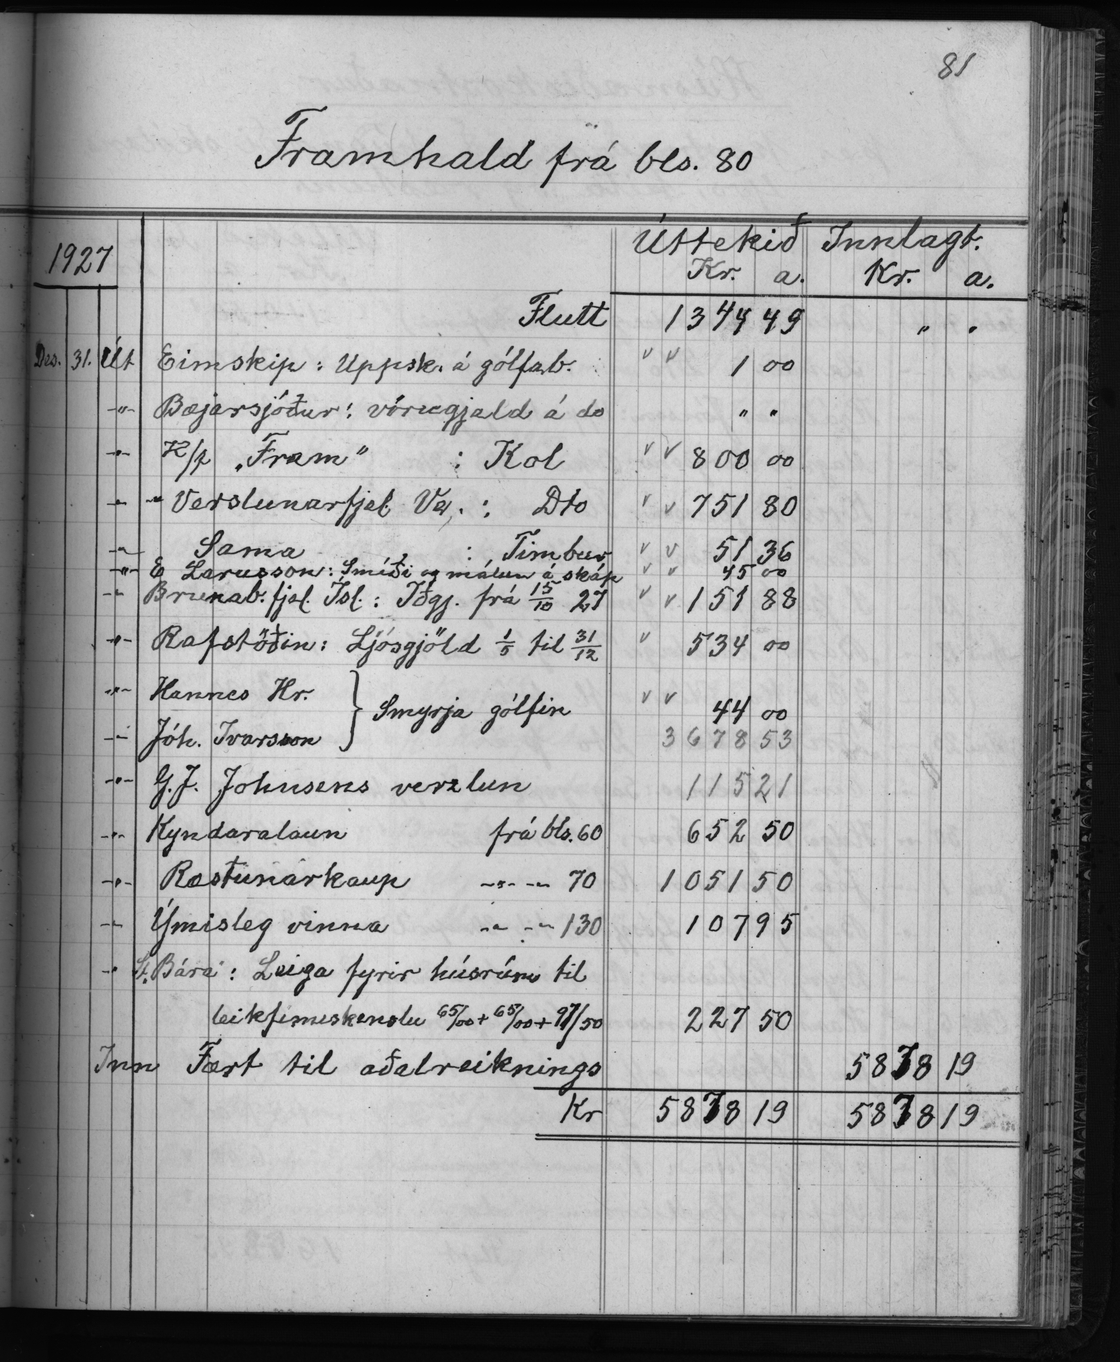 81
Framhald frá bls. 80
1927 Úttekið Innlagt.
Kr. a. Kr. a.
Flutt 1344 49 " "
Des. 31. Út Eimskip: Uppsk. á gólfáb. v v 1 00
-"- Bæjarsjóður: vörugjald á do " "
-"- H/f „Fram" : Kol v v 800 00
-"- -"- Verslunarfjel. Ve,. : Dto v v 751 80
-"- Sama : Timbur v v 51 36
-"- E Larusson: Smíði og málun á skáp v v 45 00
-"- Brunab.fjel. Ísl.: Iðgj. frá 15/10 27 v v 151 88
-"- Rafstöðin: Ljósgjöld 1/5 til 31/12 v 534 00
-"- Hannes Hr. } Smyrja gólfin v v 44 00
-"- Jóh. Ivarsson 3678 53
-"- G. J. Johnsens verzlun 115 21
-"- Kyndaralaun frá bls. 60 652 50
-"- Ræstunarkaup -"- -"- 70 1051 50
-"- Ýmisleg vinna -"- -"- 130 107 95
-"- St. Bára: Leiga fyrir húsrúm til
leikfimiskenslu 65/00 + 65/00 + 97/50 227 50
Inn Fært til aðalreiknings 5838 19
Kr 5838 19 5838 19